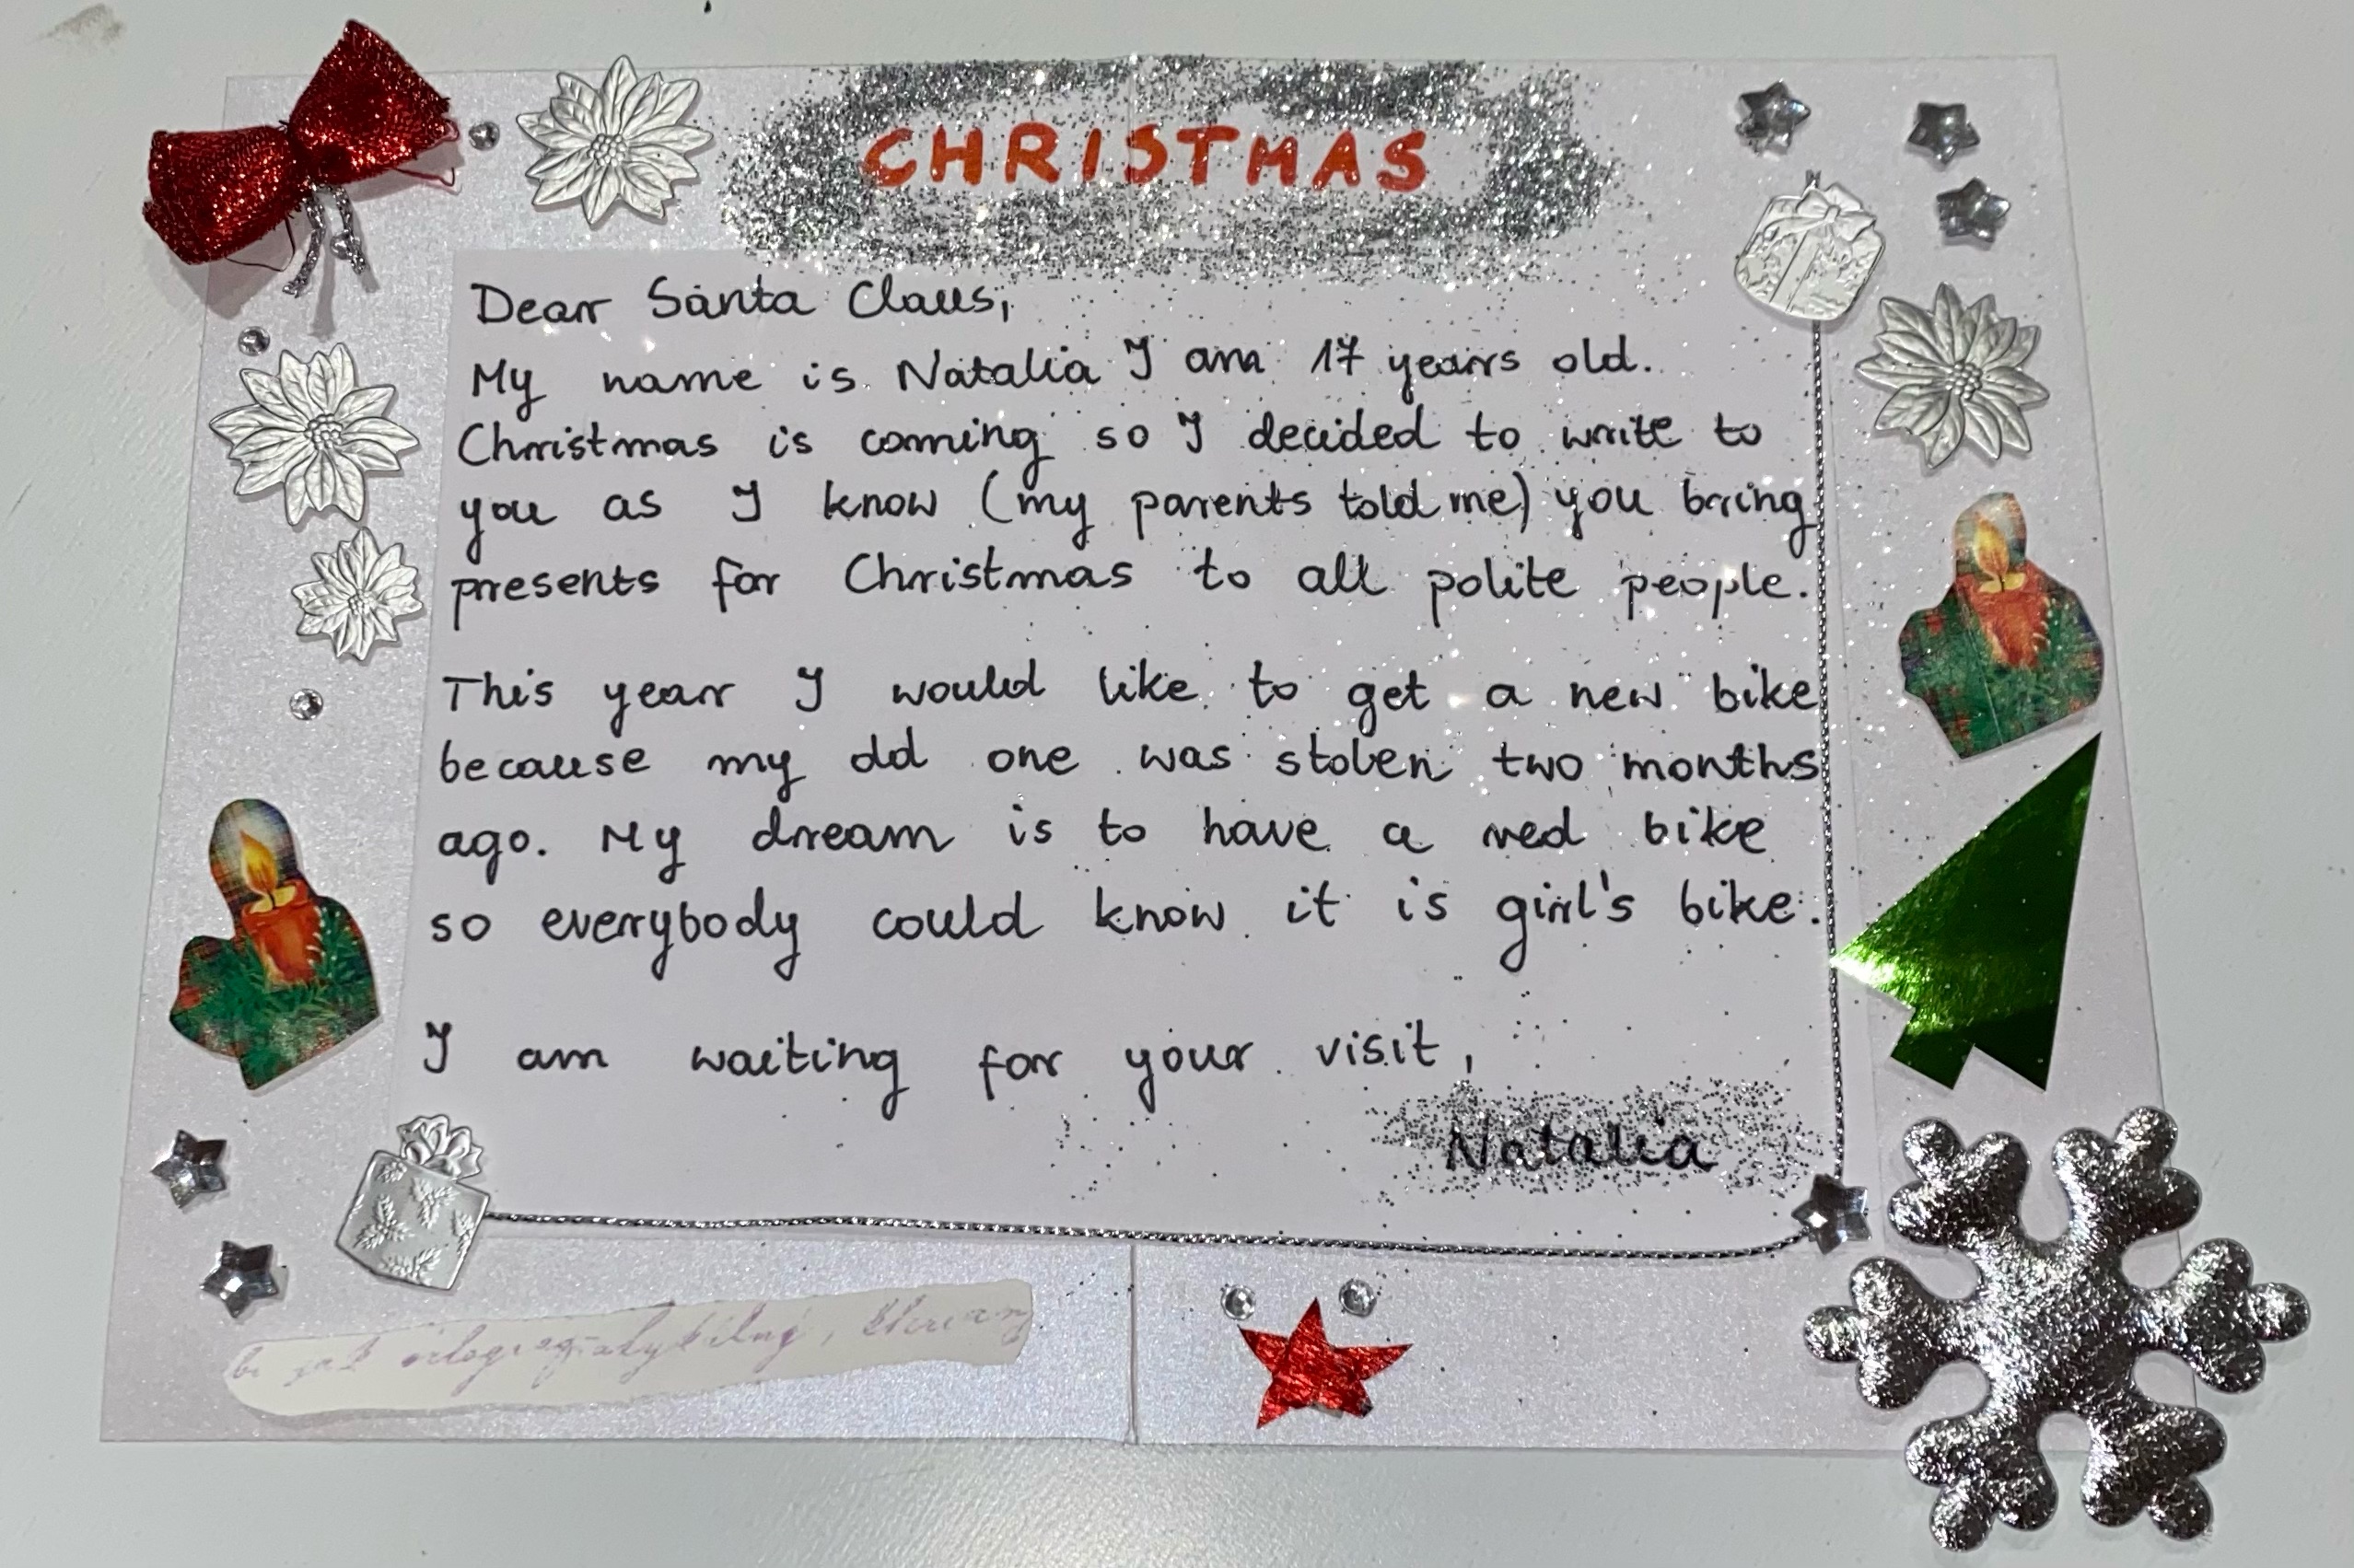 CHRISTMAS
Dear Santa Claus,
My name is Natalia I am 17 years old.
Christmas is coming so I decided to write to
you as I know (my parents told me) you bring
presents for Christmas to all polite people.
This year I would like to get a new bike
because my old one was stolen two months
ago. My dream is to have a red bike
so everybody could know it is girl's bike.
I am waiting for your visit,
Natalia